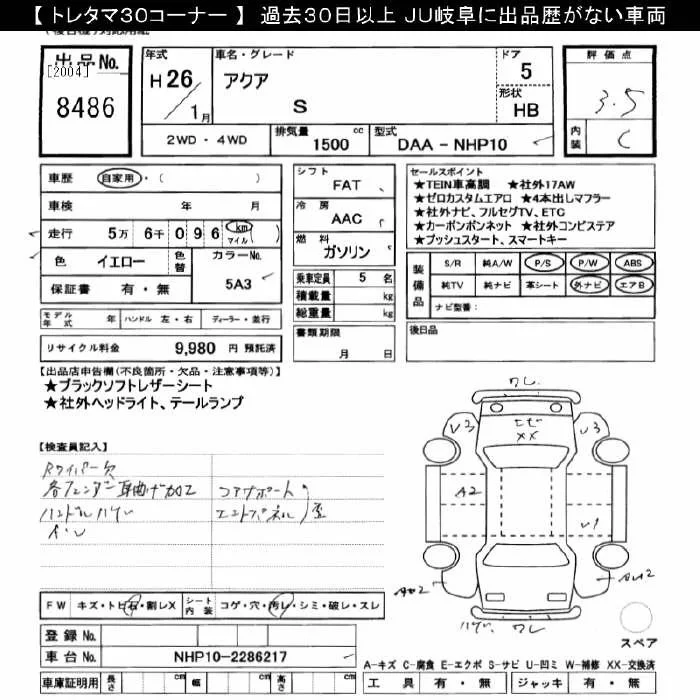 【 トレタマ30コーナー 】 過去30日以上 JU岐阜に出品歴がない車両
出品No.
[2004]
8486
年式 車名・グレード ドア
H 26 / 1月 アクア 5
S 形状
HB
2WD ・ 4WD 排気量 1500 cc 型式 DAA - NHP10
評価点
3.5
内装 C
車歴 自家用・( )
車検 年 月
走行 5万 6千 0 9 6 (km マイル)
色 イエロー 色替 カラーNo.
保証書 有・無 5A3
シフト FAT
冷房 AAC
燃料 ガソリン
乗車定員 5 名
積載量 kg
総重量 kg
セールスポイント
★TEIN車高調 ★社外17AW
★ゼロカスタムエアロ ★4本出しマフラー
★社外ナビ、フルセグTV、ETC
★カーボンボンネット ★社外コンビステア
★プッシュスタート、スマートキー
装備品 S/R 純A/W P/S P/W ABS
純TV 純ナビ 革シート 外ナビ エアB
ナビ型番:
モデル年式 年 ハンドル 左・右 ディーラー・並行
書類期限
月 日
後日品
リサイクル料金 9,980 円 預託済
【出品店申告欄(不良箇所・欠品・注意事項等)】
★ブラックソフトレザーシート
★社外ヘッドライト、テールランプ
【検査員記入】
Rワイパー欠
各フェンダー耳曲げ加工 コアサポート
ハンドルハゲ エンドパネル 歪
ワレ
エビ
XX
U3
A2
U1
ハゲ ワレ
FW キズ・トビ石・割レX シート内装 コゲ・穴・汚レ・シミ・破レ・スレ
スペア
登録 No.
車台 No. NHP10-2286217
A-キズ C-腐食 E-エクボ S-サビ U-凹ミ W-補修 XX-交換済
車庫証明用 長さ cm 幅 cm 高さ cm
工具 有・無 ジャッキ 有・無